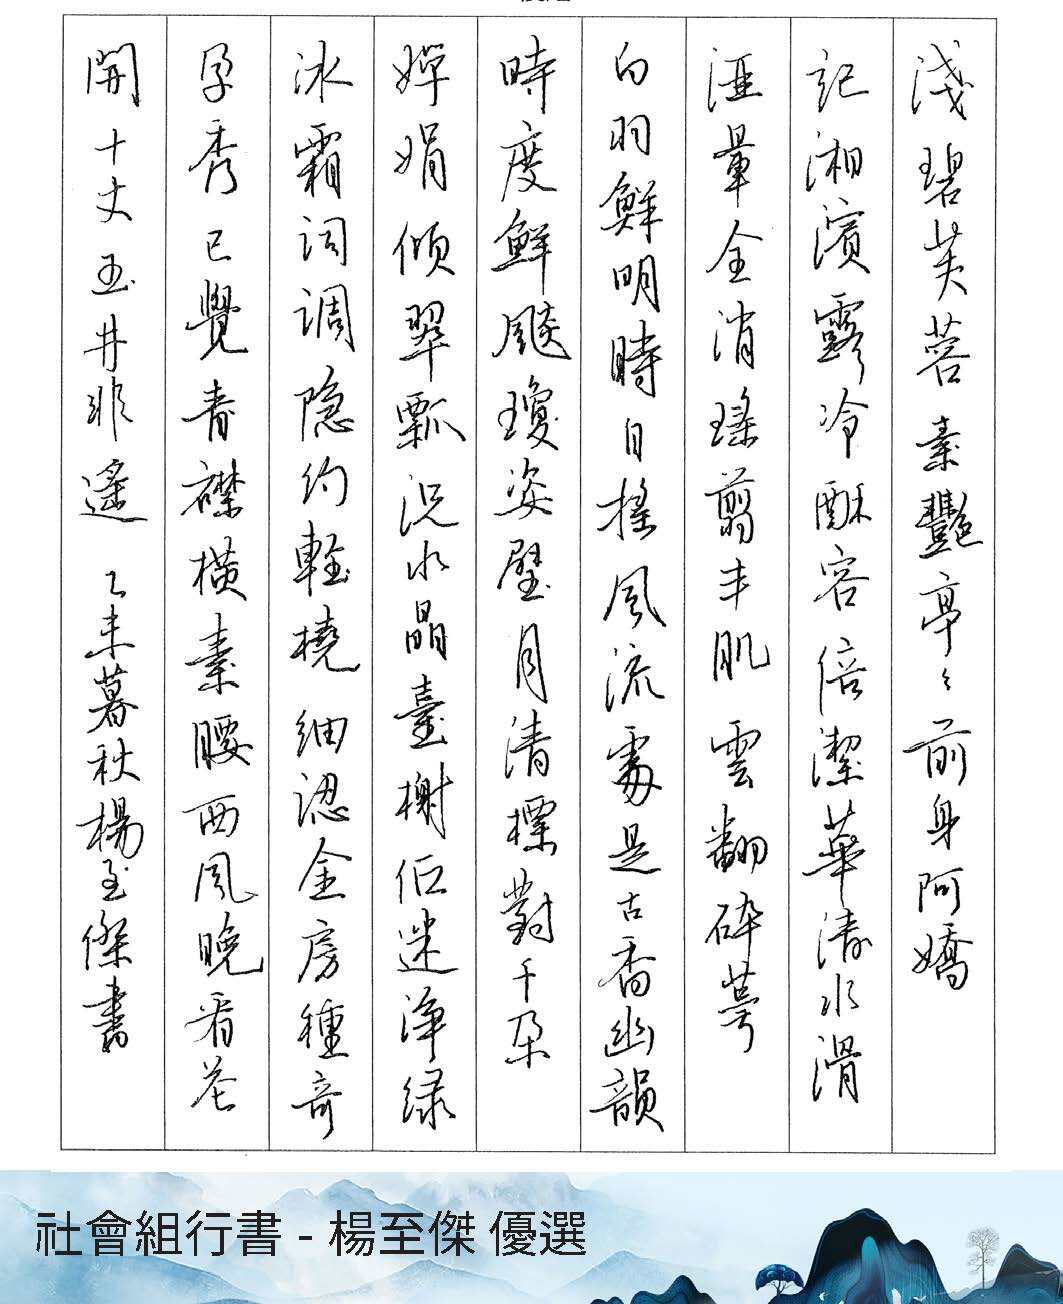 淺碧芙蓉素艷亭々前身阿嬌
記湘濱露冷酥容倍潔華清水滑
洭暈全消瑤翦丰肌雲翻碎萼
白羽鮮明時自搖風流處是古香幽韻
時度鮮飈瓊姿璧月清標對千朵
嬋娟傾翠瓢況水晶臺榭低迷淨綠
冰霜詞調隐約輕橈細認金房種奇
孕秀已覺青襟橫素腰西風晚看花
開十丈玉井非遙 乙未暮秋楊至傑書
社會組行書 - 楊至傑 優選